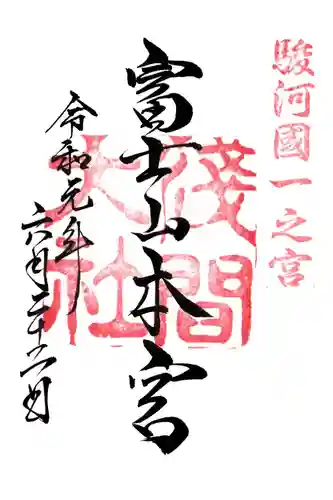 駿河國一之宮
富士山本宮
淺間大社
令和元年
六月二十六日